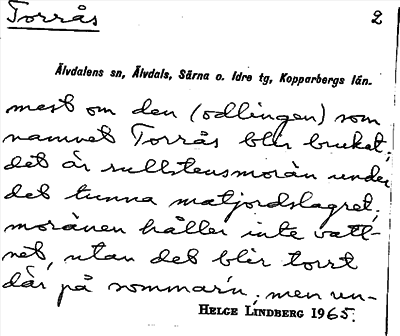 Torrås 2
Älvdalens sn, Älvdals, Särna o. Idre tg, Kopparbergs län.
mest om den (odlingen) som
namnet Torrås blir brukat;
det är rullstensmorän under
det tunna matjordslagret,
moränen håller inte vatt-
net, utan det blir torrt
där på sommarn, men un-
HELGE LINDBERG 1965.